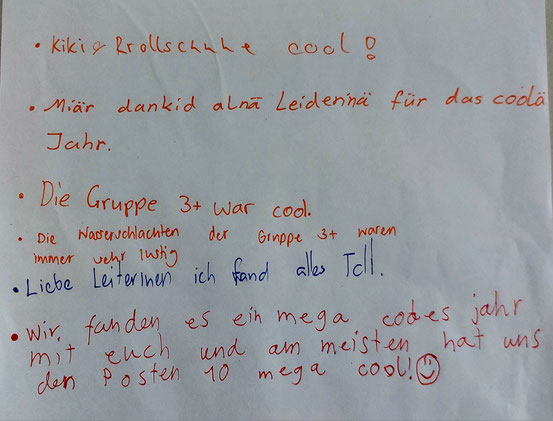 • Kiki & Rrollschuhe cool!
• Miär dankid alnä Leiderinä für das coolä
Jahr.
• Die Gruppe 3+ war cool.
• Die Wasserschlachten der Gruppe 3+ waren
immer sehr lustig
• Liebe Leiterinen ich fand alles Toll.
• Wir, fanden es ein mega cooles jahr
mit euch und am meisten hat uns
den Posten 10 mega cool! ☺